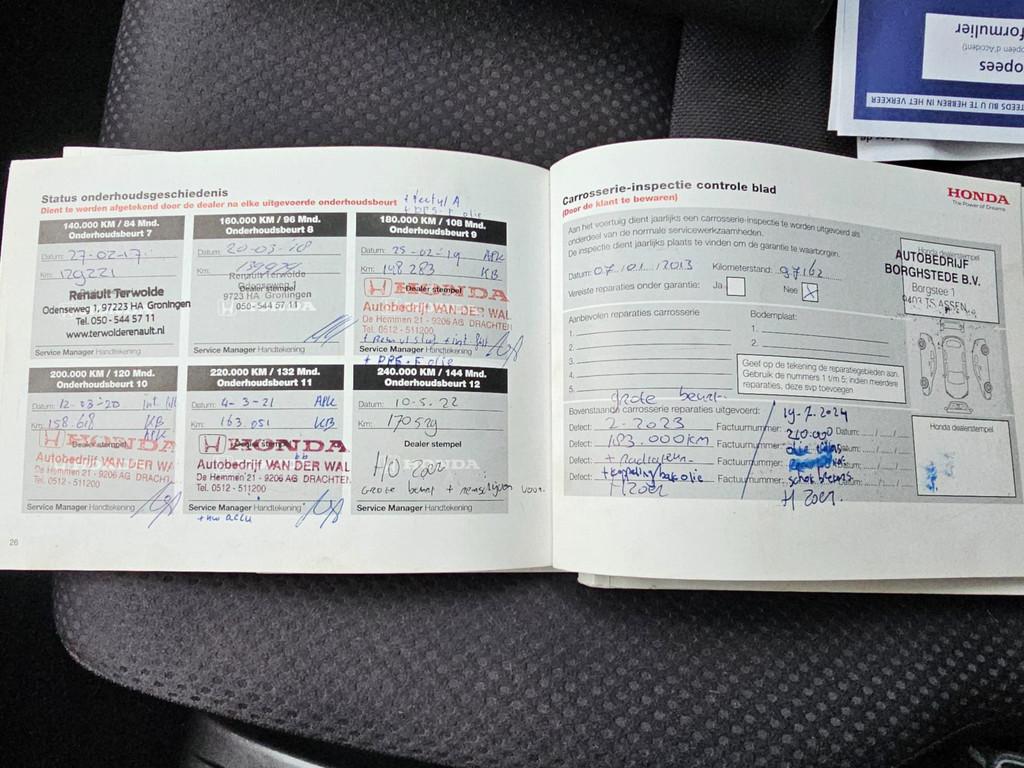 Status onderhoudsgeschiedenis
Dient te worden afgetekend door de dealer na elke uitgevoerde onderhoudsbeurt
140.000 KM / 84 Mnd.
Onderhoudsbeurt 7
Datum: 27-02-17
Km: 129221
Renault Terwolde
Odenseweg 1, 97223 HA Groningen
Tel. 050 - 544 57 11
www.terwolderenault.nl
Service Manager Handtekening
160.000 KM / 96 Mnd.
Onderhoudsbeurt 8
Datum: 20-03-18
Km:
Renault Terwolde
Odenseweg 1
9723 HA Groningen
050-544 57 11
Service Manager Handtekening
180.000 KM / 108 Mnd.
Onderhoudsbeurt 9
Datum: 25-02-19 APK
Km: 148283 KB
Dealer stempel
HONDA
Autobedrijf VAN DER WAL
De Hemmen 21 - 9206 AG DRACHTEN
Tel. 0512 - 511200
Service Manager Handtekening
200.000 KM / 120 Mnd.
Onderhoudsbeurt 10
Datum: 12-03-20
Km: 158.618 KB
APK
Dealer stempel
HONDA
Autobedrijf VAN DER WA
De Hemmen 21 - 9206 AG DRACHTEN
Tel. 0512 - 511200
Service Manager Handtekening
220.000 KM / 132 Mnd.
Onderhoudsbeurt 11
Datum: 4-3-21 APK
Km: 163.051 KB
Dealer stempel
HONDA
Autobedrijf VAN DER WAL
De Hemmen 21 - 9206 AG DRACHTEN
Tel. 0512 - 511200
Service Manager Handtekening
+ nw accu
240.000 KM / 144 Mnd.
Onderhoudsbeurt 12
Datum: 10-5-22
Km: 170529
Dealer stempel
HONDA
Grote beurt + remschijven voor
Service Manager Handtekening
26
Carrosserie-inspectie controle blad
(Door de klant te bewaren)
HONDA
The Power of Dreams
Aan het voertuig dient jaarlijks een carrosserie-inspectie te worden uitgevoerd als
onderdeel van de normale servicewerkzaamheden.
De inspectie dient jaarlijks plaats te vinden om de garantie te waarborgen.
Datum: 07/01/2013 Kilometerstand: 97162
Vereiste reparaties onder garantie: Ja Nee X
Honda dealerstempel
AUTOBEDRIJF
BORGHSTEDE B.V.
Borgstee 1
9403 TS ASSEN
Aanbevolen reparaties carrosserie
1.
2.
3.
4.
5.
Bodemplaat:
1.
2.
Geef op de tekening de reparatiegebieden aan.
Gebruik de nummers 1 t/m 5; indien meerdere
reparaties, deze svp toevoegen.
grote beurt
Bovenstaande carrosserie reparaties uitgevoerd:
Defect: 2-2023 Factuurnummer: Datum:
Defect: 183.000km Factuurnummer: Datum:
Defect: + radiateur Factuurnummer: Datum:
Defect: + koppelingbakolie Factuurnummer: Datum:
H Zoer
19-7-2024
210.000
H Zoer.
Honda dealerstempel
STEEDS BIJ U TE HEBBEN IN HET VERKEER
opees
(opéen d'Accident)
formulier